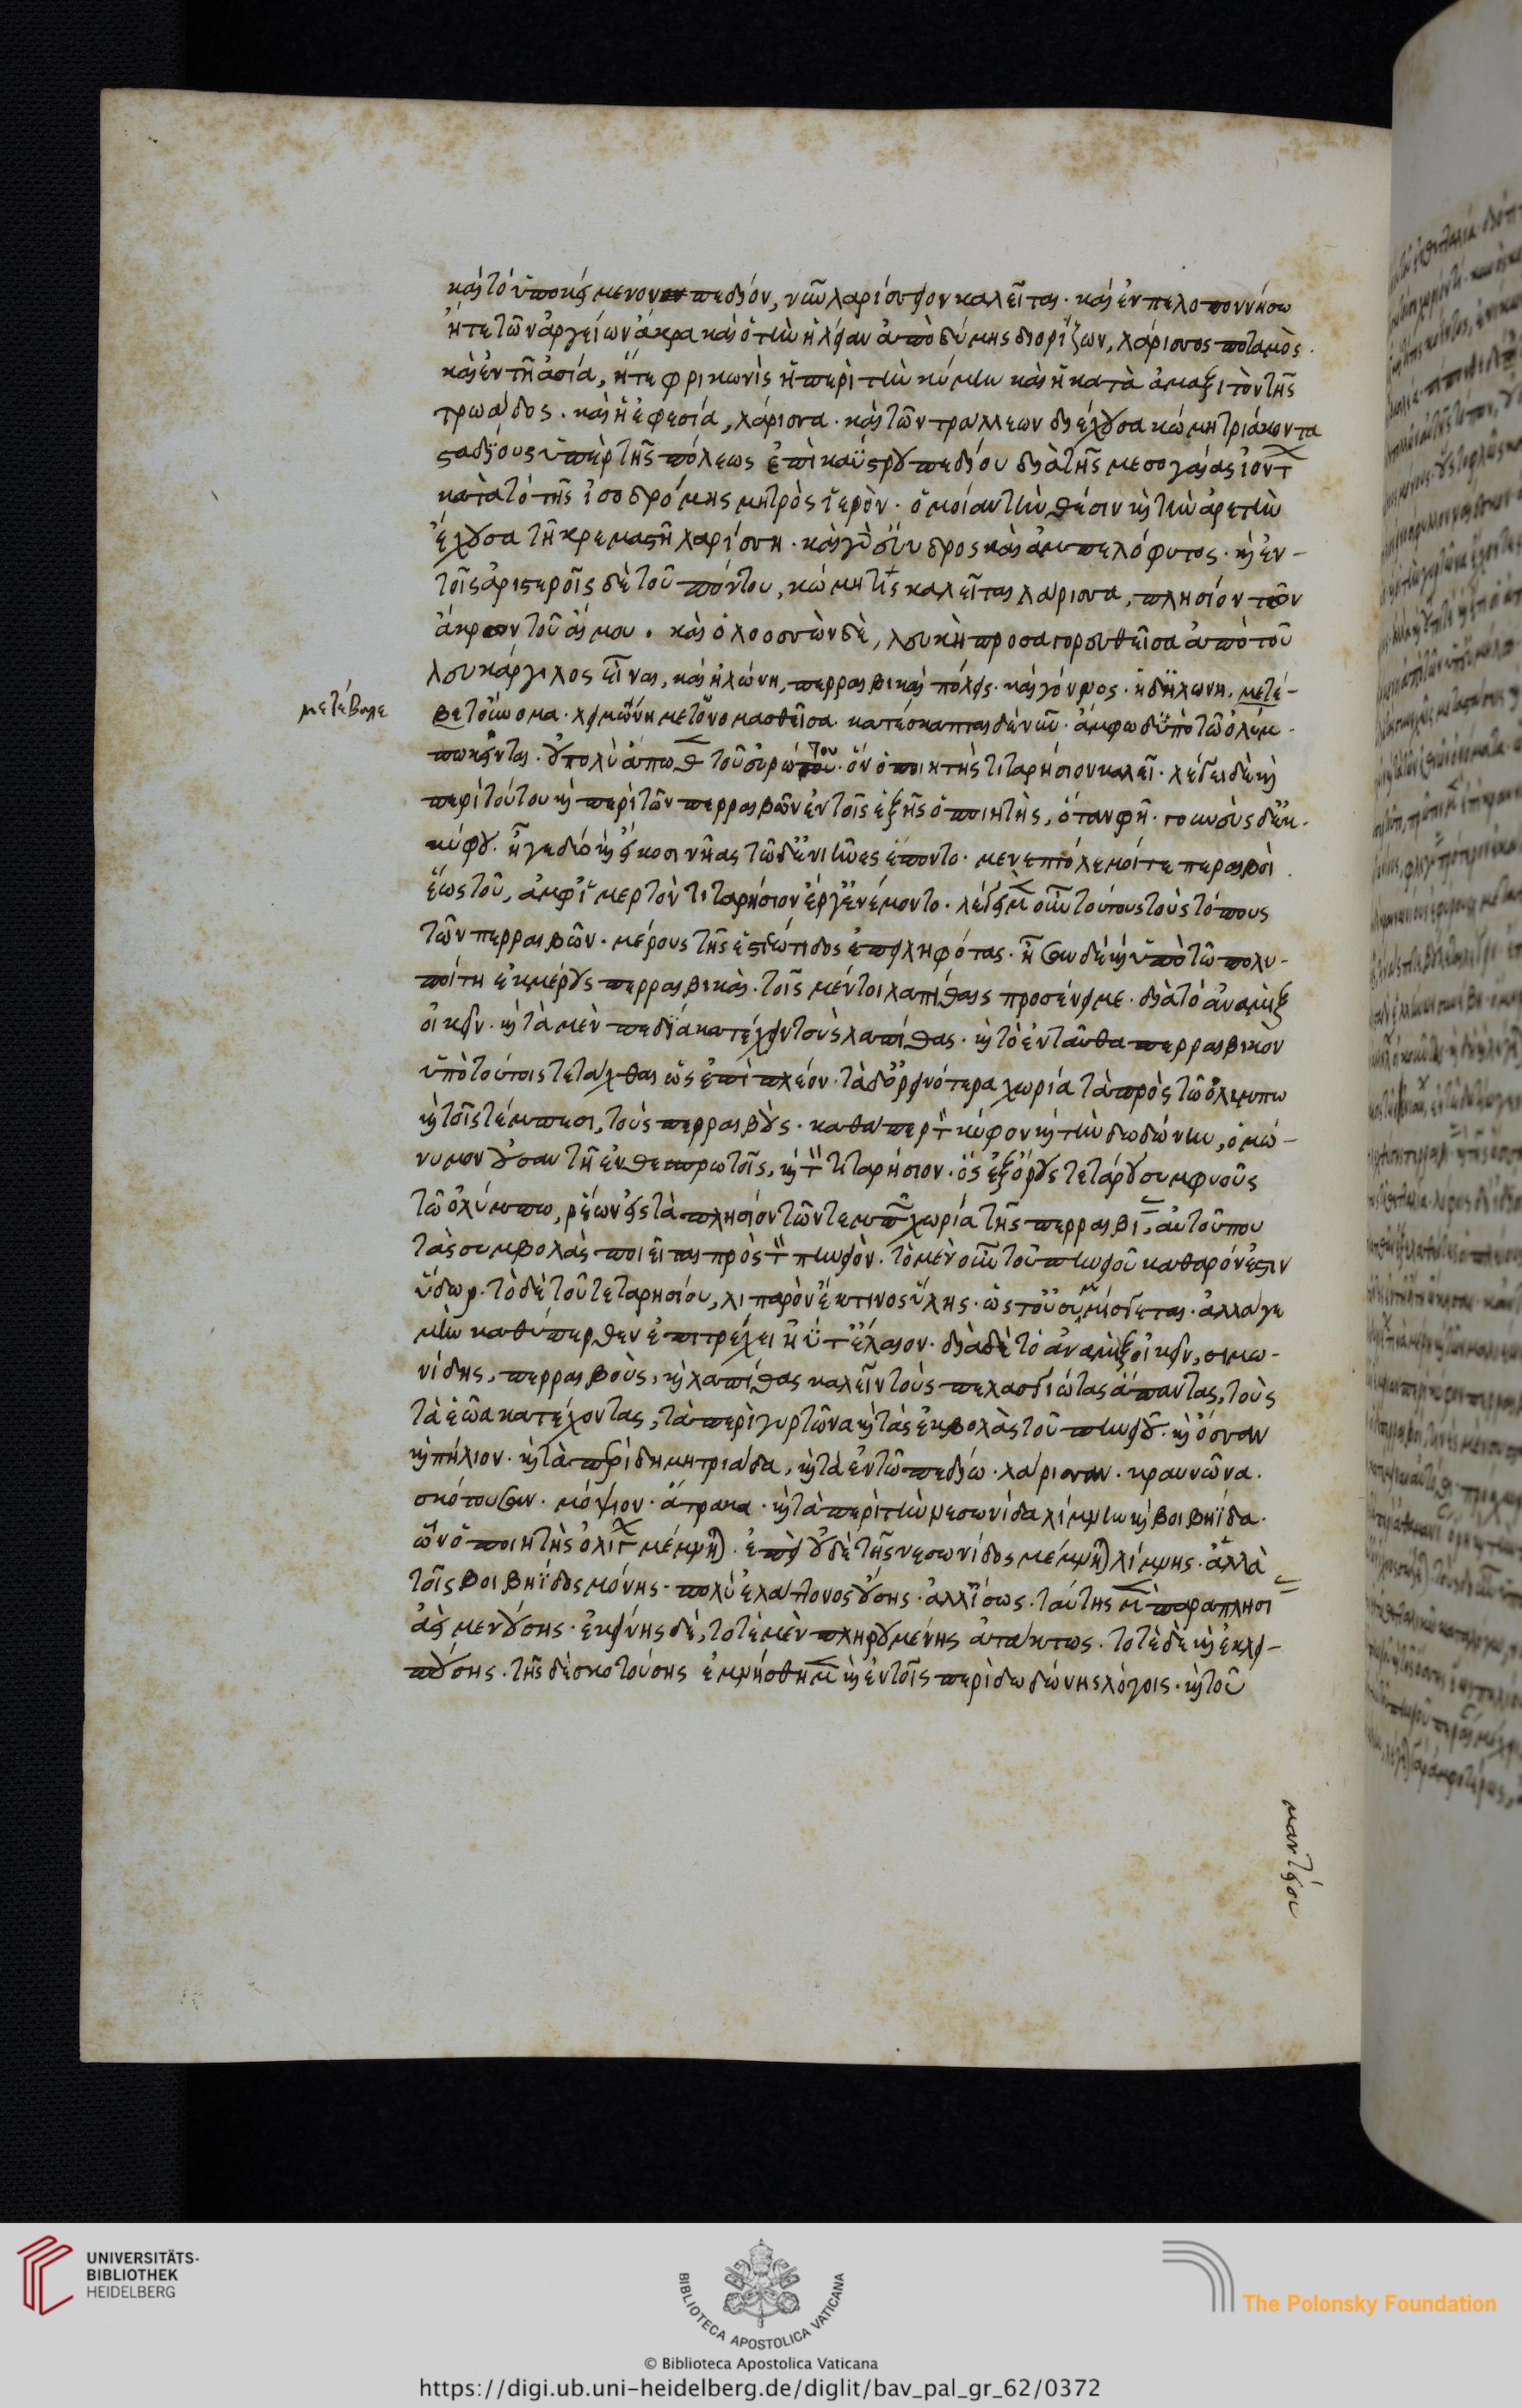 καὶ τὸ ὑποκείμενον πεδίον, νῦν λαρίσιον καλεῖται· καὶ ἐν πελοποννήσω
ἥτε τῶν ἀργείων ἄκρα καὶ ὁ τὴν ἠλείαν ἀπὸ δύμης διορίζων, λάρισσος ποταμὸς·
καὶ ἐν τῆ ἀσία, ἥτε φρικωνὶς ἡ περὶ τὴν κύμην καὶ ἡ κατὰ ἀμαξιτὸν τῆς
τρωάδος· καὶ ἡ ἐφεσία, λάρισσα· καὶ τῶν τράλλεων διέχουσα κώμη τριάκοντα
σταδίους ὑπὲρ τῆς πόλεως ἐπὶ καΰστρου πεδίου διὰ τῆς μεσογαίας ἰοντ
κατὰ τὸ τῆς ἰσοδρόμης μητρὸς ἱερὸν· ὁμοίαν τὴν θέσιν καὶ τὴν ἀρετὴν
ἔχουσα τῆ κρεμαστῆ λαρίσση· καὶ γὰρ εὔυδρος καὶ ἀμπελόφυτος· καὶ ἐν-
τοῖς ἀριστεροῖς δὲ τοῦ πόντου, κώμη τίς καλεῖται λάρισσα, πλησίον τῶν
ἄκρων τοῦ αἵμου. καὶ ὀλοοσσὼν δὲ, λευκὴ προσαγορευθεῖσα ἀπὸ τοῦ
λευκάργιλος εἶναι, καὶ ἠλώνη, περραιβικαὶ πόλεις· καὶ γόννος· ἡ δ' ἠλώνη, μετέ-
μετέβαλε
βε τοὔνομα· λειμώνη μετονομασθεῖσα· κατέσκαπται δὲ νῦν· ἄμφω δ' ὑπὸ τῶ ὀλύμ-
πω κεῖνται· οὐ πολὺ ἄπωθ τοῦ εὐρώπου του· ὃν ὁ ποιητὴς τιταρήσιον καλεῖ· λέγει δὲ καὶ
περὶ τούτου καὶ περὶ τῶν περραιβῶν ἐν τοῖς ἑξῆς ὁ ποιητὴς, ὅταν φῆ· γουνεὺς δ' ἐκ-
κύφου· ἦγε δύο καὶ εἴκοσι νῆας τῶ δ' ἐνιῆνες ἕποντο· μενεπτόλεμοί τε περαιβοὶ
ἕως τοῦ, ἀμφ' ἱμερτὸν τιταρήσιον ἔργ' ἐνέμοντο· λέγει μ οὖν τούτους τοὺς τόπους
τῶν περραιβῶν· μέρους τῆς ἑστιώτιδος ἐπειληφότας· ἦσαν δὲ καὶ ὑπὸ τῶ πολυ-
ποίτη ἐκ μέρους περραιβικαὶ· τοῖς μέντοι λαπίθαις προσένειμε· διὰ τὸ ἀναμὶξ
οἰκεῖν· καὶ τὰ μὲν πεδία κατέχειν τοὺς λαπίθας· καὶ τὸ ἐνταῦθα περραιβικον
ὑπὸ τούτοις τετάχθαι ὡς ἐπὶ πλέον· τὰ δ' ὀρεινότερα χωρία τὰ πρὸς τῶ ὀλύμπω
καὶ τοῖς τέμπεσι, τοὺς περραιβοὺς· καθάπερ τ κύφον καὶ τὴν δωδώνην, ὁμώ-
νυμον οὖσαν τῆ ἐν θεσπρωτοῖς, καὶ τ τιταρήσιον· ὃς ἐξ ὄρους τετάρου συμφυοῦς
τῶ ὀλύμπω, ῥέων εἰς τὰ πλησίον τῶν τεμπ χωρία τῆς περραιβι· αὐτοῦ που
τὰς συμβολὰς ποιεῖται πρὸς τ πηνειὸν· τὸ μὲν οὖν τοῦ πηνειοῦ καθαρόν ἐστιν
ὕδωρ· τὸ δὲ τοῦ τεταρησίου, λιπαρὸν ἔκ τινος ὕλης· ὥστ' οὐ συμμίσγεται· ἀλλά γε
μὶν καθύπερθεν ἐπιτρέχει ἠΰτ' ἔλαιον· διὰ δὲ τὸ ἀναμὶξ οἰκεῖν, σιμω-
νίδης, περραιβοὺς, καὶ λαπίθας καλεῖν τοὺς πελασγιώτας ἅπαντας, τοὺς
τὰ ἑῶα κατέχοντας, τὰ περὶ γυρτῶνα καὶ τὰς ἐκβολὰς τοῦ πηνειοῦ· καὶ ὄσσαν
καὶ πήλιον· καὶ τὰ περὶ δημητριάδα, καὶ τὰ ἐν τῶ πεδίω· λάρισσαν· κραννῶνα·
σκότουσαν· μόψιον· ἄτρακα· καὶ τὰ περὶ τὴν νεσωνίδα λίμνην καὶ βοιβηίδα·
ὧν ὁ ποιητὴς ὀλιγ μέμνη· ἐπεὶ οὐδὲ τῆς νεσωνίδος μέμνη λίμνης· ἀλλὰ
τοῖς βοιβηΐδος μόνης· πολὺ ἐλάττονος οὔσης· ἀλλ' ἴσως· ταύτης μ παραπλησι
αἱ μενούσης· ἐκείνης δὲ, τοτὲ μὲν πληρουμένης ἀτάκτως· τοτὲ δὲ καὶ ἐκλει-
πούσης· τῆς δὲ σκοτούσης ἐμνήσθημ καὶ ἐν τοῖς περὶ δωδώνης λόγοις· καὶ τοῦ
μαντείου
UNIVERSITÄTS-
BIBLIOTHEK
HEIDELBERG
BIBLIOTECA APOSTOLICA VATICANA
The Polonsky Foundation
© Biblioteca Apostolica Vaticana
https://digi.ub.uni-heidelberg.de/diglit/bav_pal_gr_62/0372